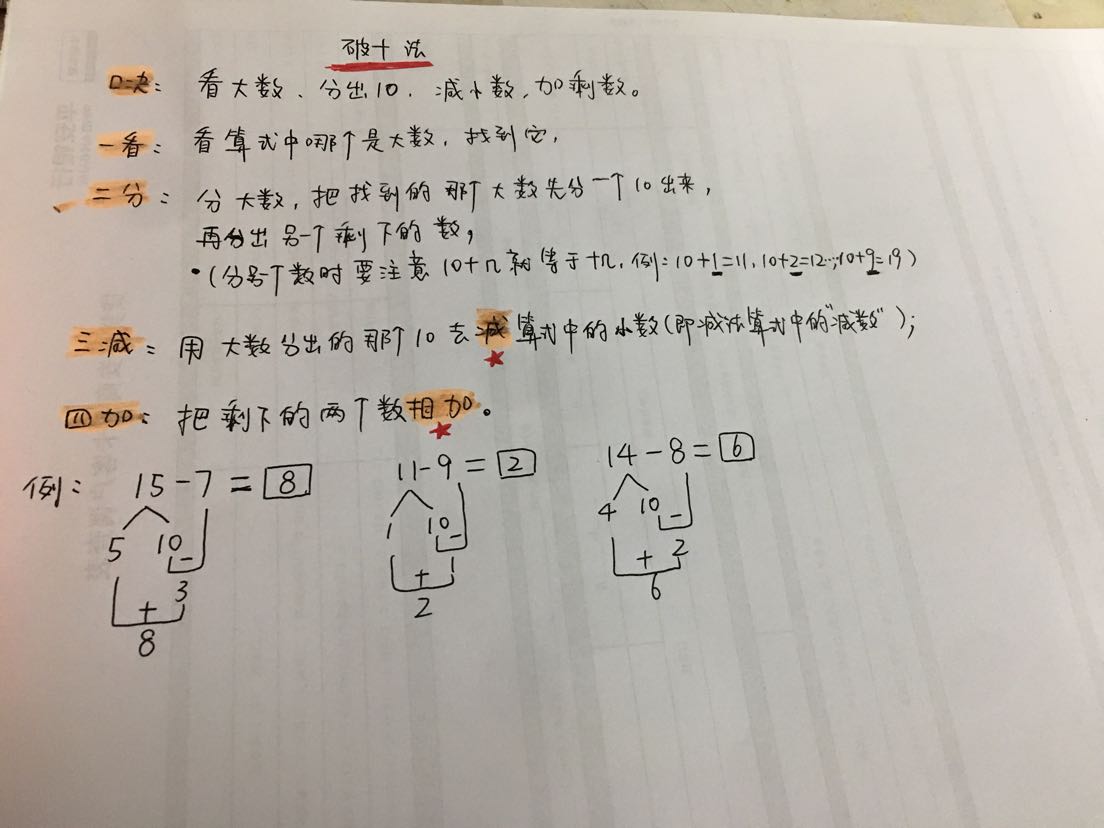 破十法
口决：看大数、分出10、减小数，加剩数。
一看：看算式中哪个是大数，找到它，
二分：分大数，把找到的那个大数先分一个10出来，
再分出另一个剩下的数，
•（分另个数时要注意10+几就等于十几，例：10+1=11，10+2=12…，10+9=19）
三减：用大数分出的那个10去减算式中的小数（即减法算式中的“减数”）；
四加：把剩下的两个数相加。
例：15-7=8 11-9=2 14-8=6
5 10 - 1 10 - 4 10 -
+ 3 + 1 + 2
8 2 6